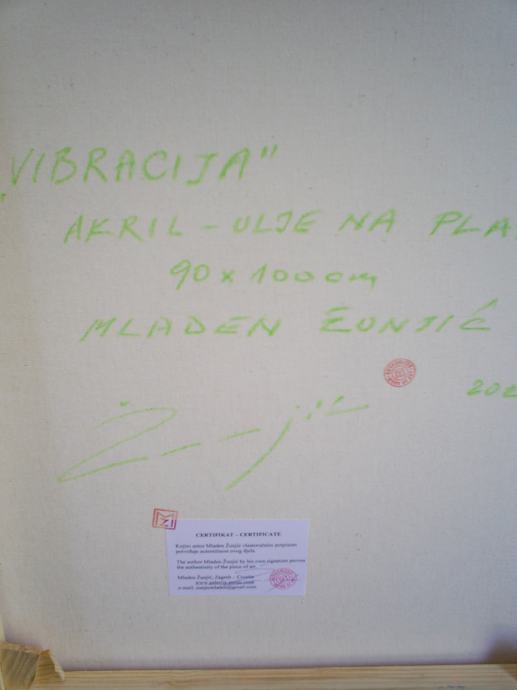 „VIBRACIJA"
AKRIL - ULJE NA PLA
90 x 100 cm
MLADEN ŽUNJIĆ
202
CERTIFIKAT – CERTIFICATE
Kojim autor Mladen Žunjić vlastoručnim potpisom
potvrđuje autentičnost ovog djela.
The author Mladen Žunjić by his own signature proves
the authenticity of the piece of art.
Mladen Žunjić, Zagreb – Croatia